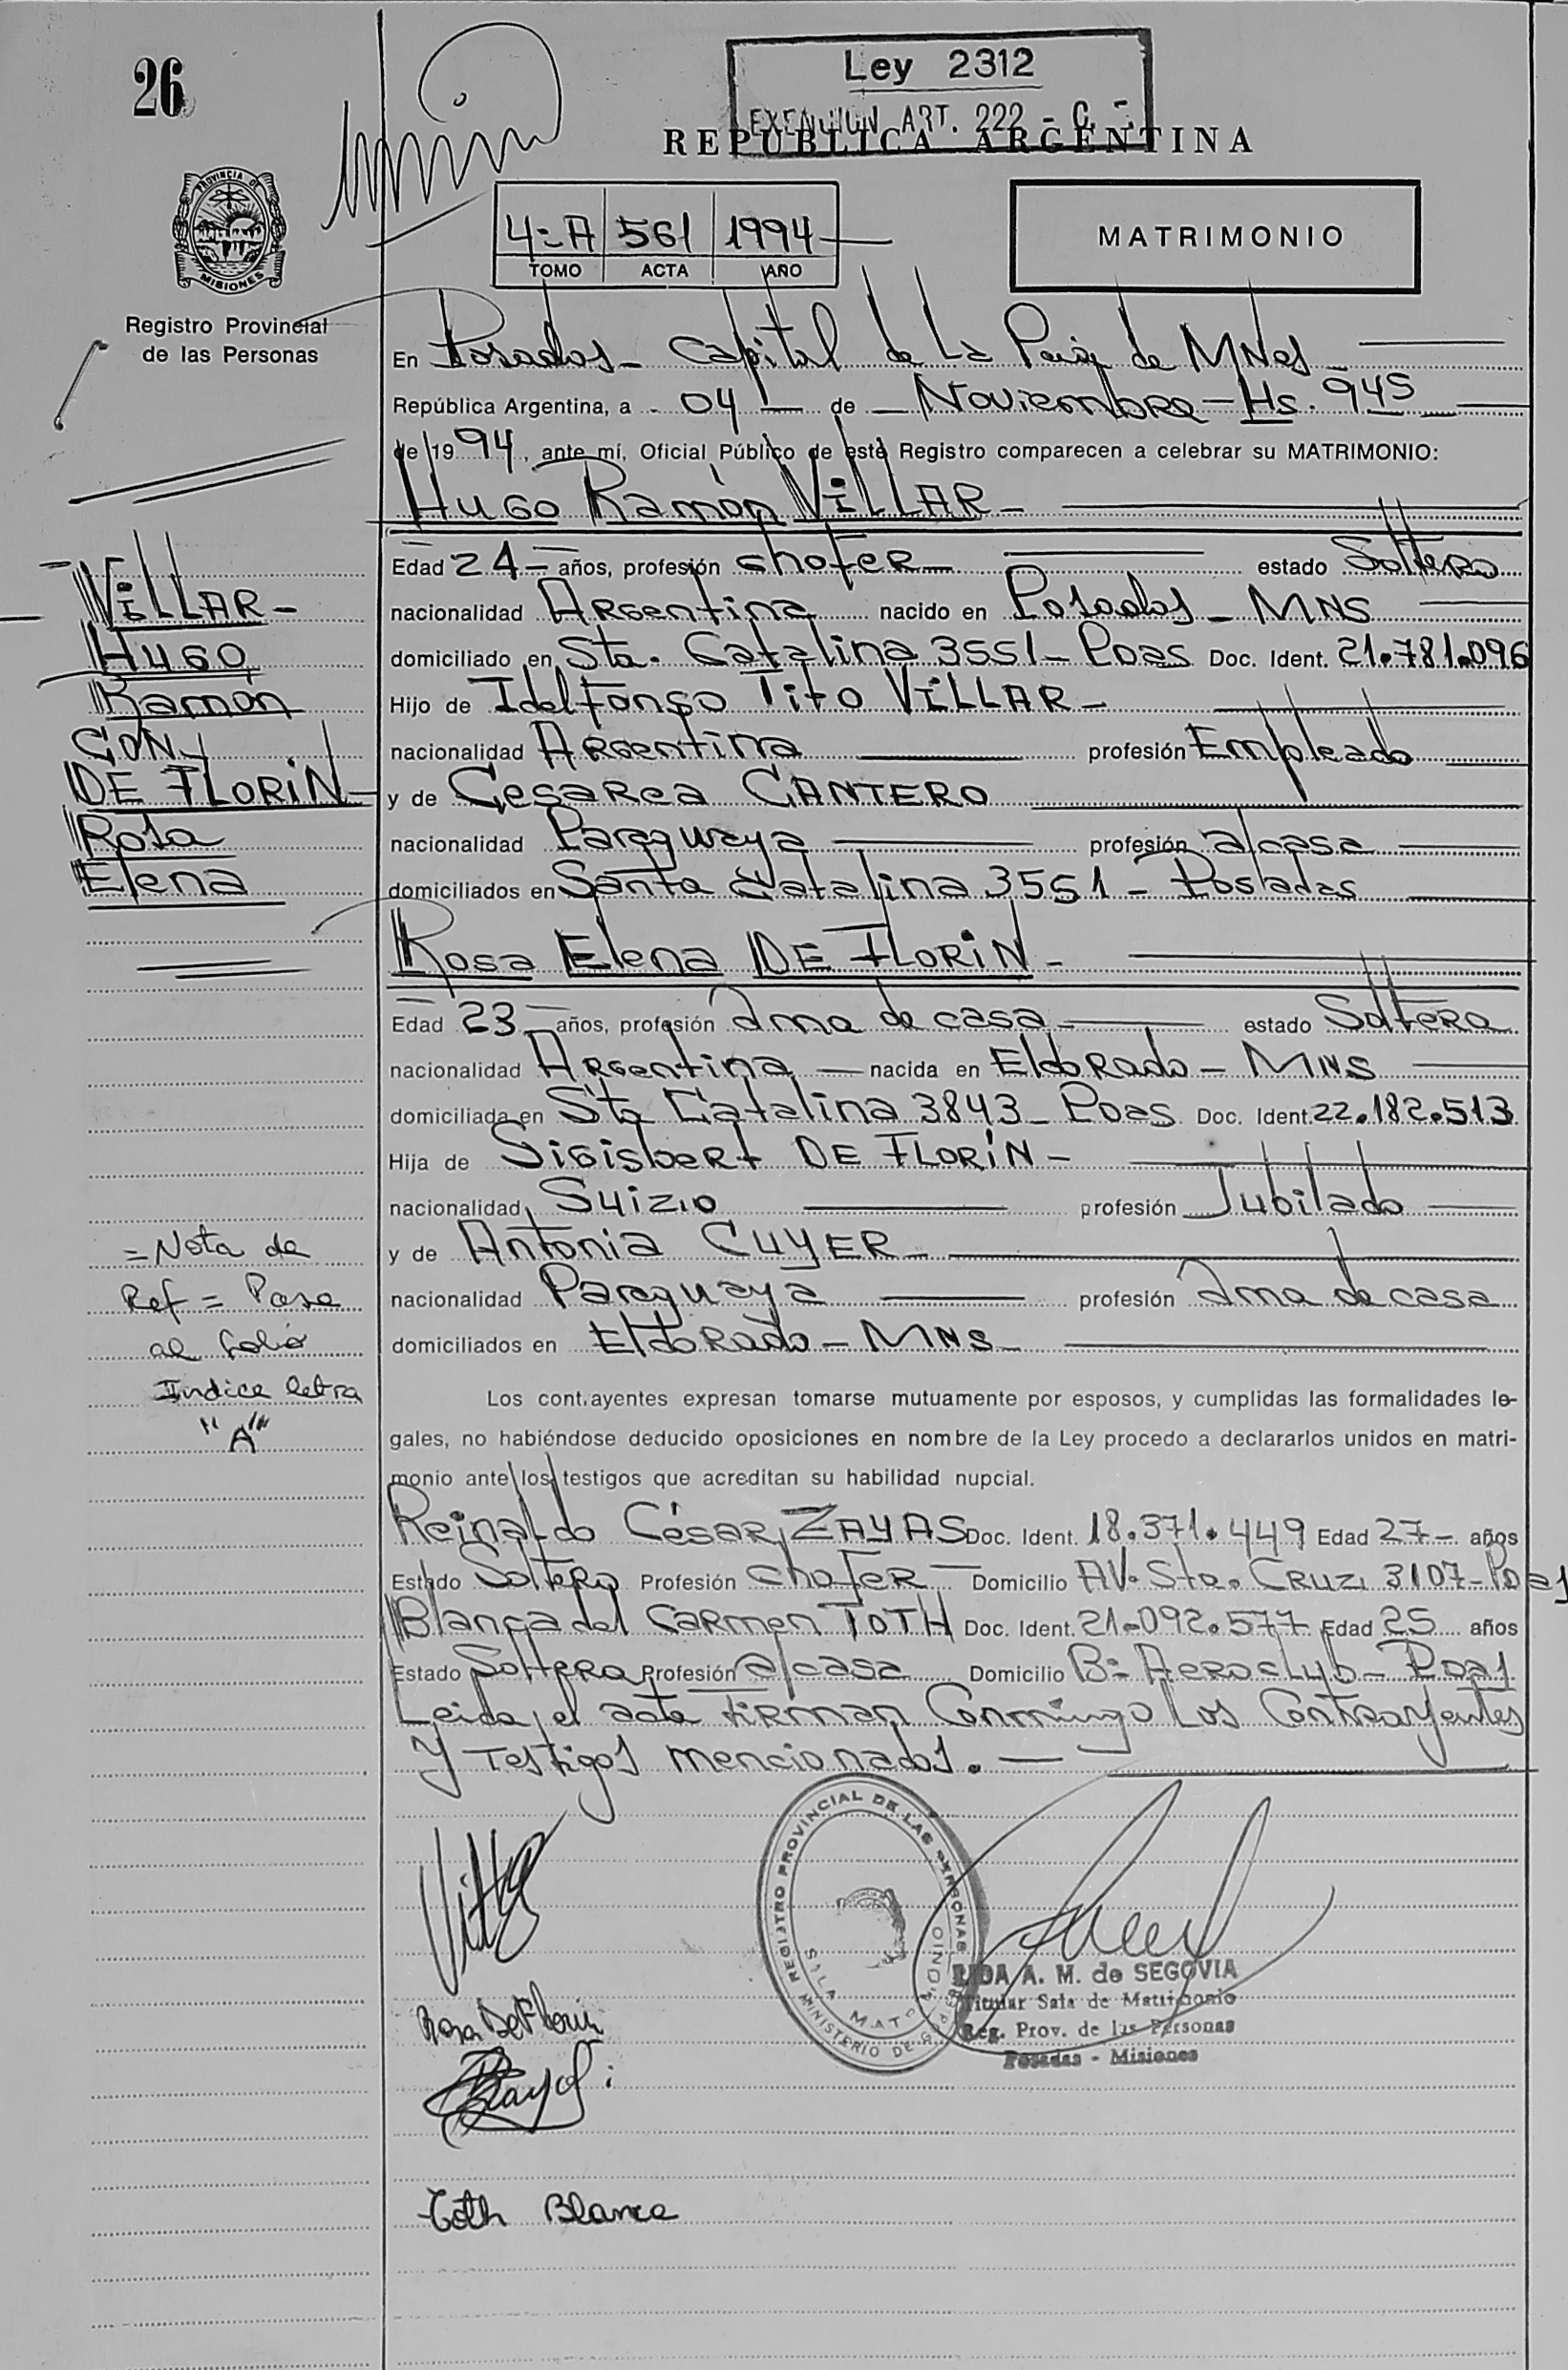 26
Ley 2312
EXENCION ART. 222 - C.
REPUBLICA ARGENTINA
PROVINCIA DE MISIONES
4-A 561 1994
TOMO ACTA AÑO
MATRIMONIO
Registro Provincial
de las Personas
En Posadas - Capital de La de MNes
República Argentina, a 04 de Noviembre - Hs. 945
de 1994, ante mí, Oficial Público de este Registro comparecen a celebrar su MATRIMONIO:
Hugo Ramón VILLAR -
Edad 24 - años, profesión chofer estado Soltero
nacionalidad Argentina nacido en Posadas - MNS
domiciliado en Sta. Catalina 3551 - Pdas Doc. Ident. 21.781.096
Hijo de Idelfonso Tito VILLAR -
nacionalidad Argentina profesión Empleado
y de Cesarea CANTERO
nacionalidad Paraguaya profesión a/casa
domiciliados en Santa Catalina 3551 - Posadas
VILLAR -
Hugo
Ramón
CON
DE FLORIN -
Rosa
Elena
Rosa Elena DE FLORIN -
Edad 23 - años, profesión Ama de casa - estado Soltera
nacionalidad Argentina - nacida en Eldorado - MNS
domiciliada en Sta Catalina 3843 - Pdas Doc. Ident. 22.182.513
Hija de Sigisbert DE FLORIN -
nacionalidad Suizo profesión Jubilado
y de Antonia CUYER -
nacionalidad Paraguaya profesión Ama de casa
domiciliados en Eldorado - MNS -
= Nota de
Ref = Pasa
al folio
Indice letra
"A"
Los contrayentes expresan tomarse mutuamente por esposos, y cumplidas las formalidades le-
gales, no habiéndose deducido oposiciones en nombre de la Ley procedo a declararlos unidos en matri-
monio ante los testigos que acreditan su habilidad nupcial.
Reinaldo César ZAYAS Doc. Ident. 18.371.449 Edad 27 - años
Estado Soltero Profesión chofer Domicilio AV. Sta. CRUZ 3107 - Pdas
Blanca del Carmen TOTH Doc. Ident. 21.092.577 Edad 25 años
Estado Soltera Profesión a/casa Domicilio Bº Aeroclub - Pdas
Leida el acta firman Conmigo Los Contrayentes
y Testigos mencionados. -
REGISTRO PROVINCIAL DE LAS PERSONAS
MINISTERIO DE
Rosa De Florin
A. M. de SEGOVIA
Titular Sala de Matrimonio
Reg. Prov. de las Personas
Posadas - Misiones
Toth Blanca